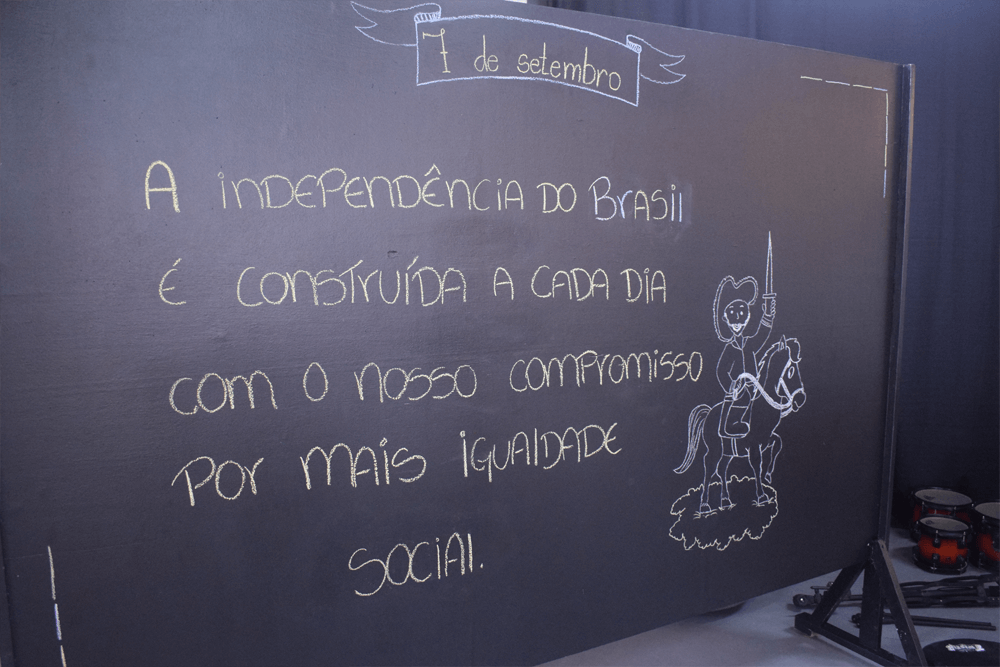 7 de setembro
A INDEPENDÊNCIA DO Brasil
É CONSTRUÍDA A CADA DIA
com o nosso compromisso
por mais igualdade
social.